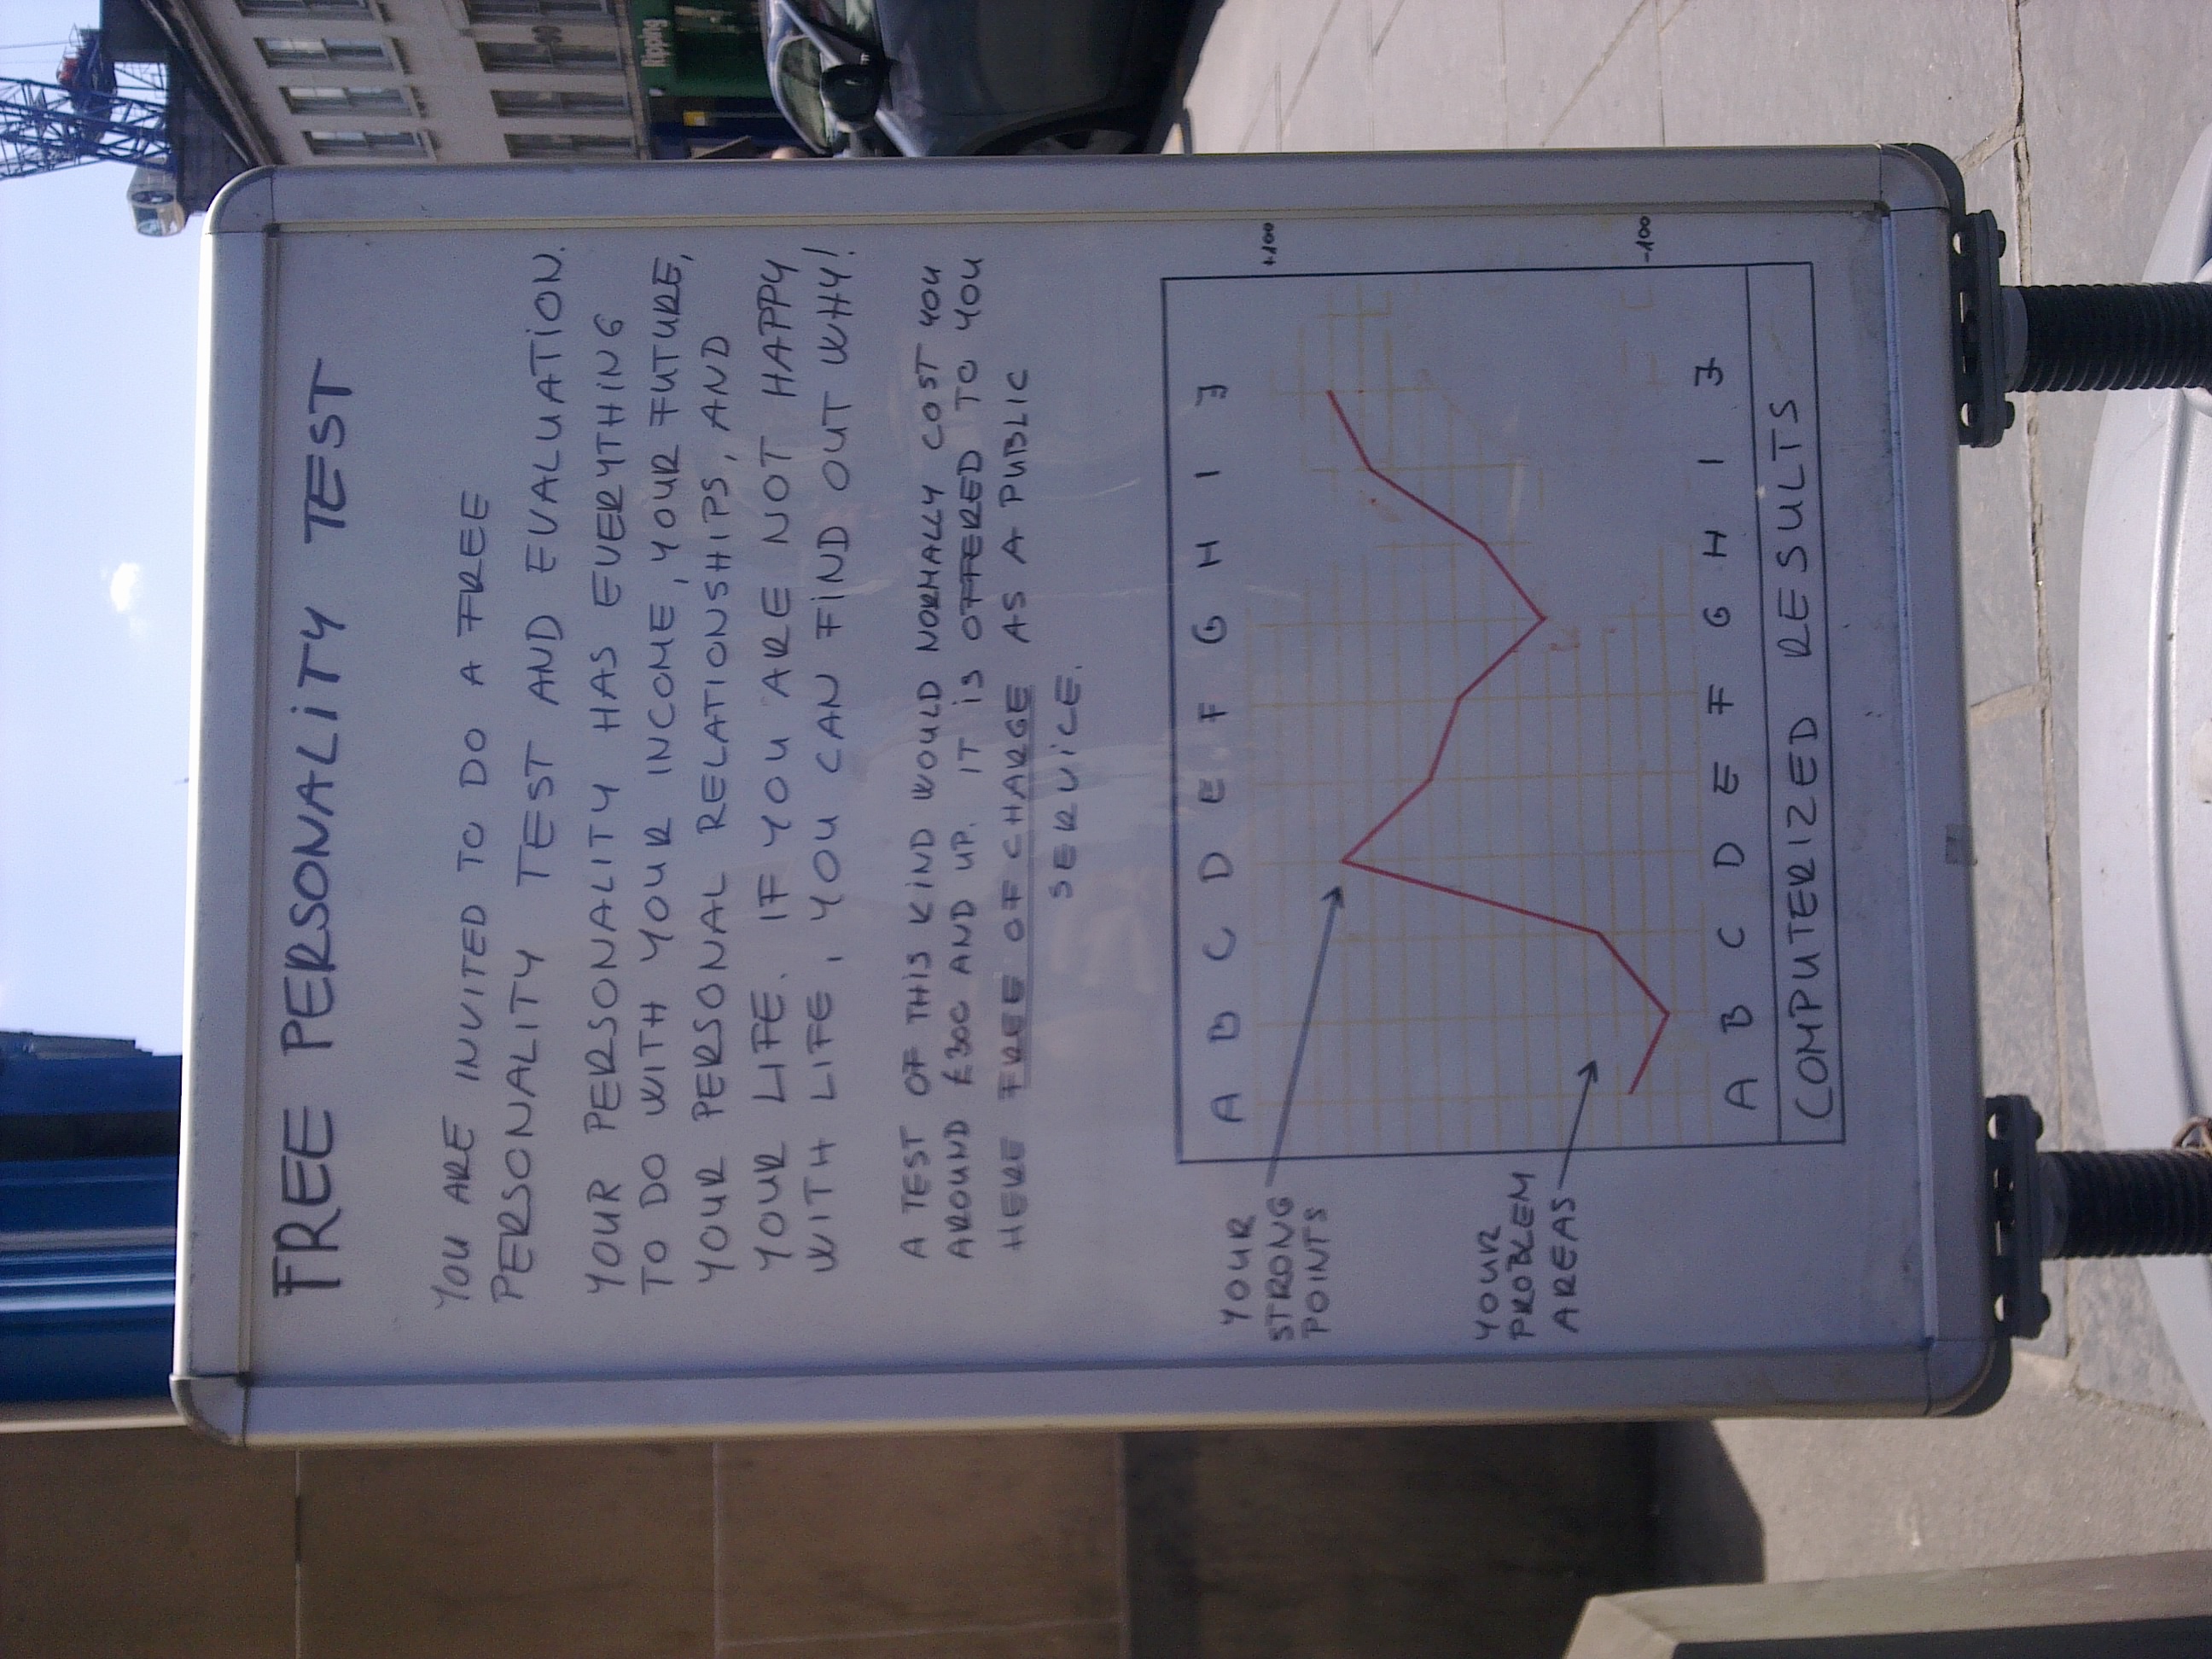 FREE PERSONALITY TEST
YOU ARE INVITED TO DO A FREE
PERSONALITY TEST AND EVALUATION.
YOUR PERSONALITY HAS EVERYTHING
TO DO WITH YOUR INCOME, YOUR FUTURE,
YOUR PERSONAL RELATIONSHIPS, AND
YOUR LIFE. IF YOU ARE NOT HAPPY
WITH LIFE, YOU CAN FIND OUT WHY!
A TEST OF THIS KIND WOULD NORMALLY COST YOU
AROUND £300 AND UP. IT IS OFFERED TO YOU
HERE FREE OF CHARGE AS A PUBLIC
SERVICE.
A B C D E F G H I J
+100
YOUR
STRONG
POINTS
YOUR
PROBLEM
AREAS
-100
A B C D E F G H I J
COMPUTERIZED RESULTS